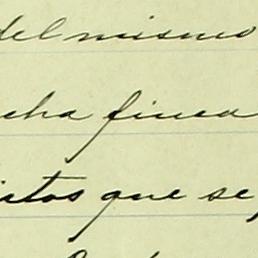 del mismo
cha finca
que se